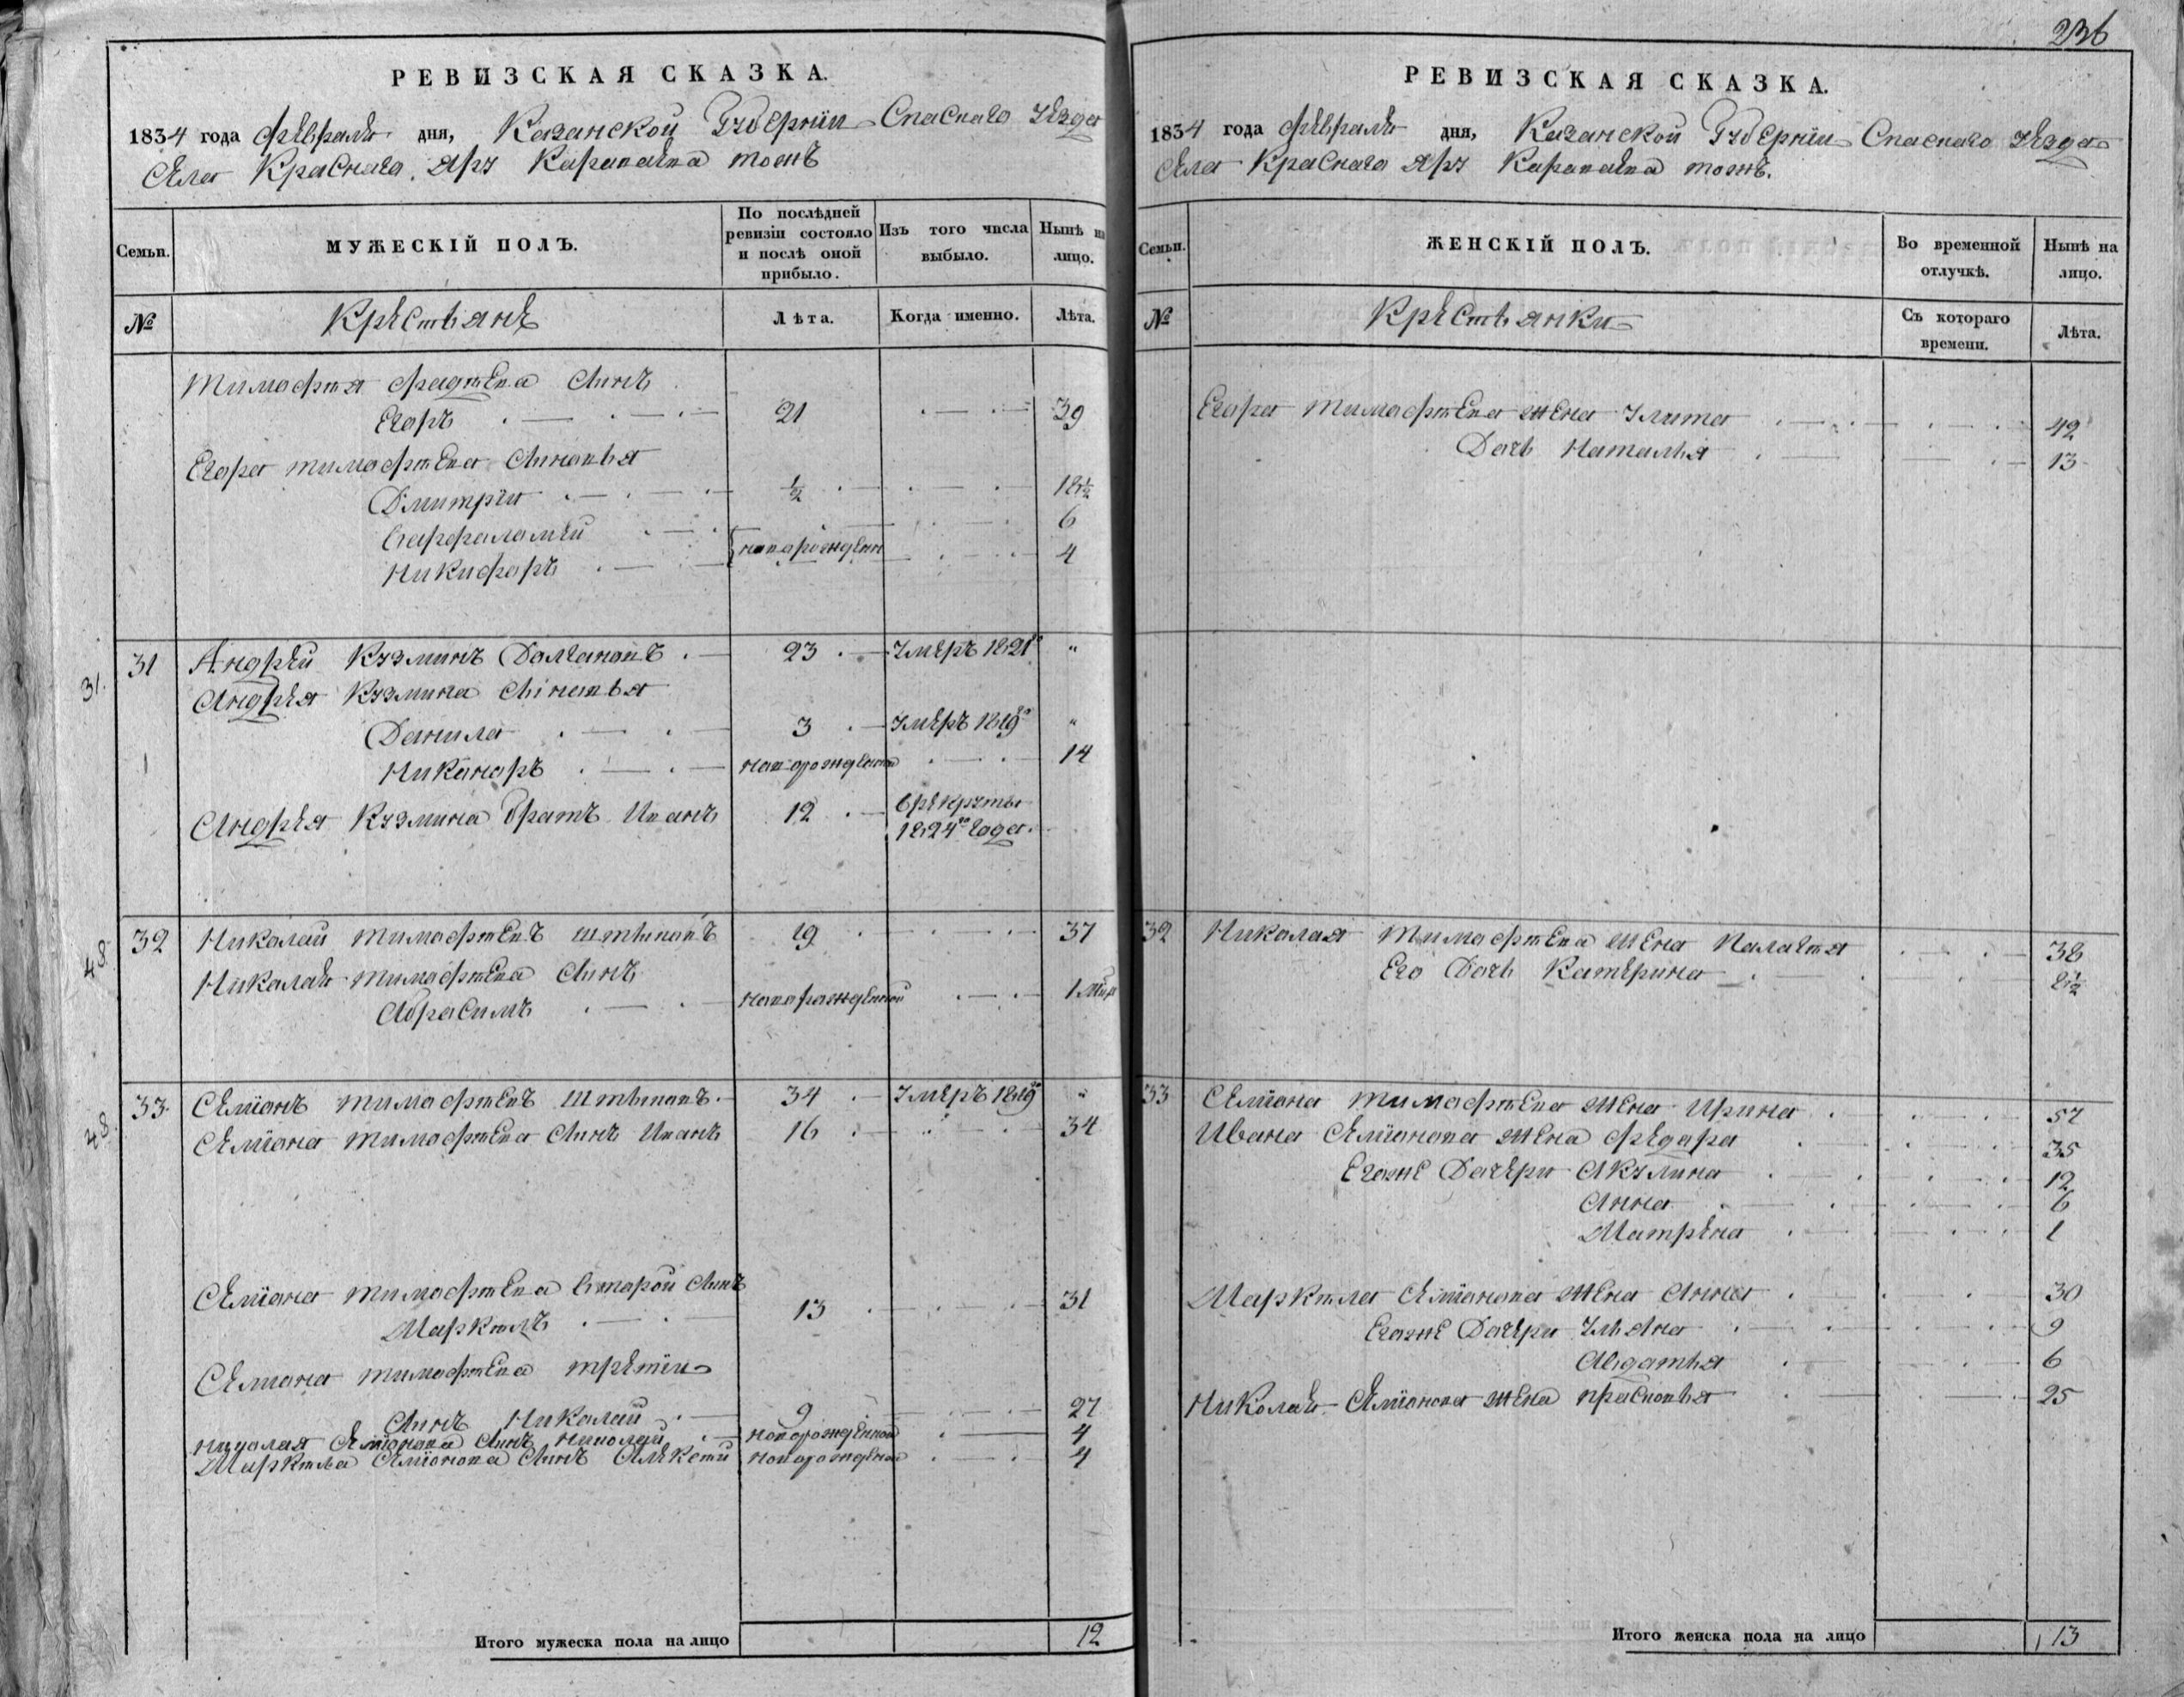 РЕВИЗСКАЯ СКАЗКА.
1834 года февраля дня, Казанской Губернии Спаскаго уезда
Села Краснаго Яру тожъ
Семьи. МУЖЕСКІЙ ПОЛЪ. По послѣдней ревизіи состояло и послѣ оной прибыло. Изъ того числа выбыло. Нынѣ на лицо.
№ Крестьянѣ Лѣта. Когда именно. Лѣта.
Тимофея сынъ
Егоръ 21 39
Егора Тимофеева сыновья
Дмитрий ½ 18½
6
Никифоръ 4
31. 31 Андрей Кузминъ 23 умеръ 1821го "
Андрея Кузмина сыновья
Данила 3 умеръ 1819го "
Никаноръ новорожденной 14
Андрея Кузмина братъ Иванъ 12 в рекруты
1824го года
48. 32 Николай Тимофеевъ 19 37
Николая Тимофеева сынъ
новорожденной
48. 33 Семионъ Тимофеевъ 34 умеръ 1819го "
Семиона Тимофеева сынъ Иванъ 16 34
Семиона Тимофеева второй сынъ
Маркелъ 13 31
Семиона Тимофеева третии
сынъ Николай 9 27
Николая Семионова сынъ Николай новорожденной 4
Маркела Семионова сынъ Алексей новорожденной 4
Итого мужеска пола на лицо 12
236
РЕВИЗСКАЯ СКАЗКА.
1834 года февраля дня, Казанской Губернии Спаскаго уезда
Села Краснаго Яру тожъ.
Семьи. ЖЕНСКІЙ ПОЛЪ. Во временной отлучкѣ. Нынѣ на лицо.
№ Крестьянки Съ котораго времени. Лѣта.
Егора Тимофеева жена Улита 42
Дочь Наталья 13
32 Николая Тимофеева жена Палагея 38
Его дочь Катерина 8½
33 Семиона Тимофеева жена Ирина 57
Ивана Семионова жена Федора 35
Егоже дочери Акулина 12
Анна 6
Матрена 1
Маркела Семионова жена Анна 30
Егоже дочери Ульяна 9
Авдотья 6
Николая Семионова жена Прасковья 25
Итого женска пола на лицо 13